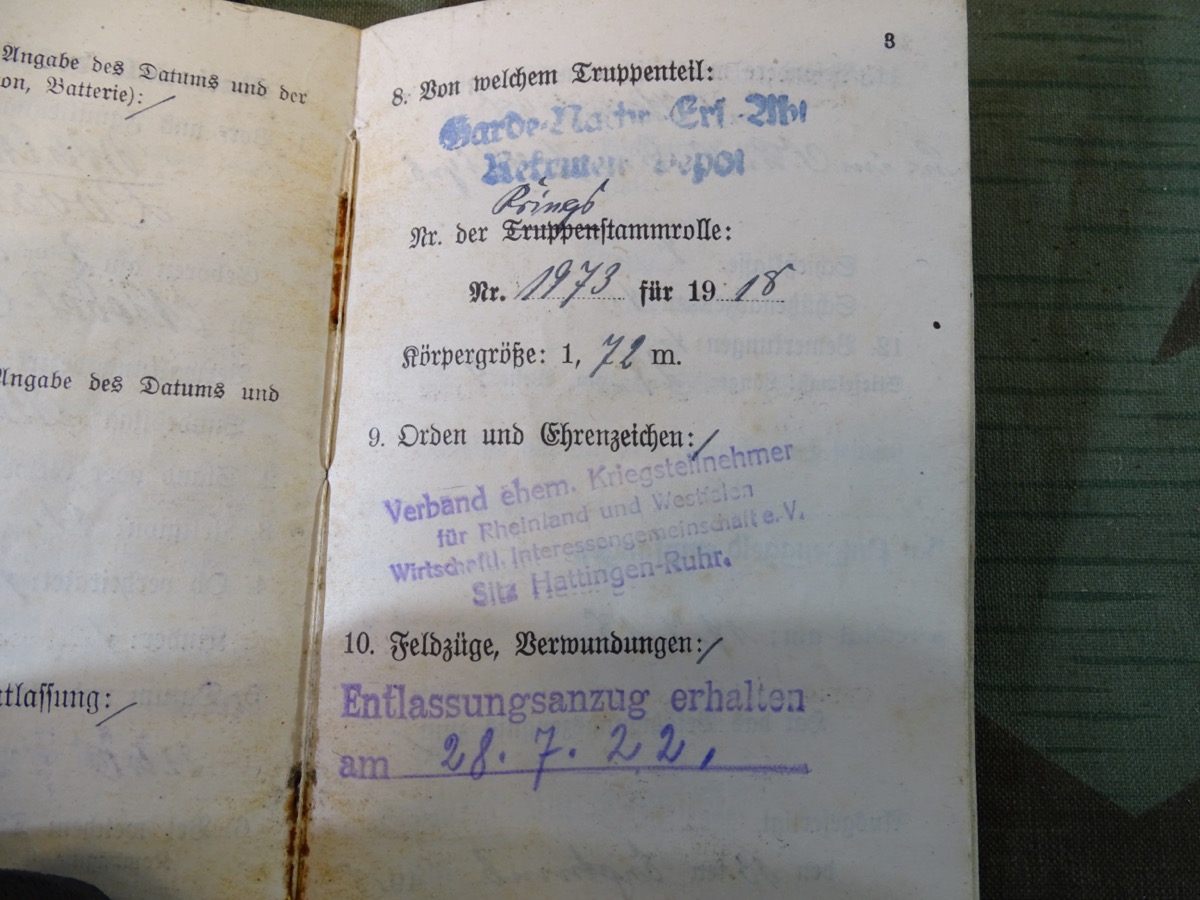 Angabe des Datums und der
on, Batterie): /
Angabe des Datums und
tlassung: /
3
8. Von welchem Truppenteil:
Garde- Ers.-Abt
Rekruten Depot
Kriegs
Nr. der Truppenstammrolle:
Nr. 1973 für 19 18
Körpergröße: 1, 72 m.
9. Orden und Ehrenzeichen: /
Verband ehem. Kriegsteilnehmer
für Rheinland und Westfalen
Wirtschaftl. Interessengemeinschaft e. V.
Sitz Hattingen-Ruhr.
10. Feldzüge, Verwundungen: /
Entlassungsanzug erhalten
am 28. 7. 22.